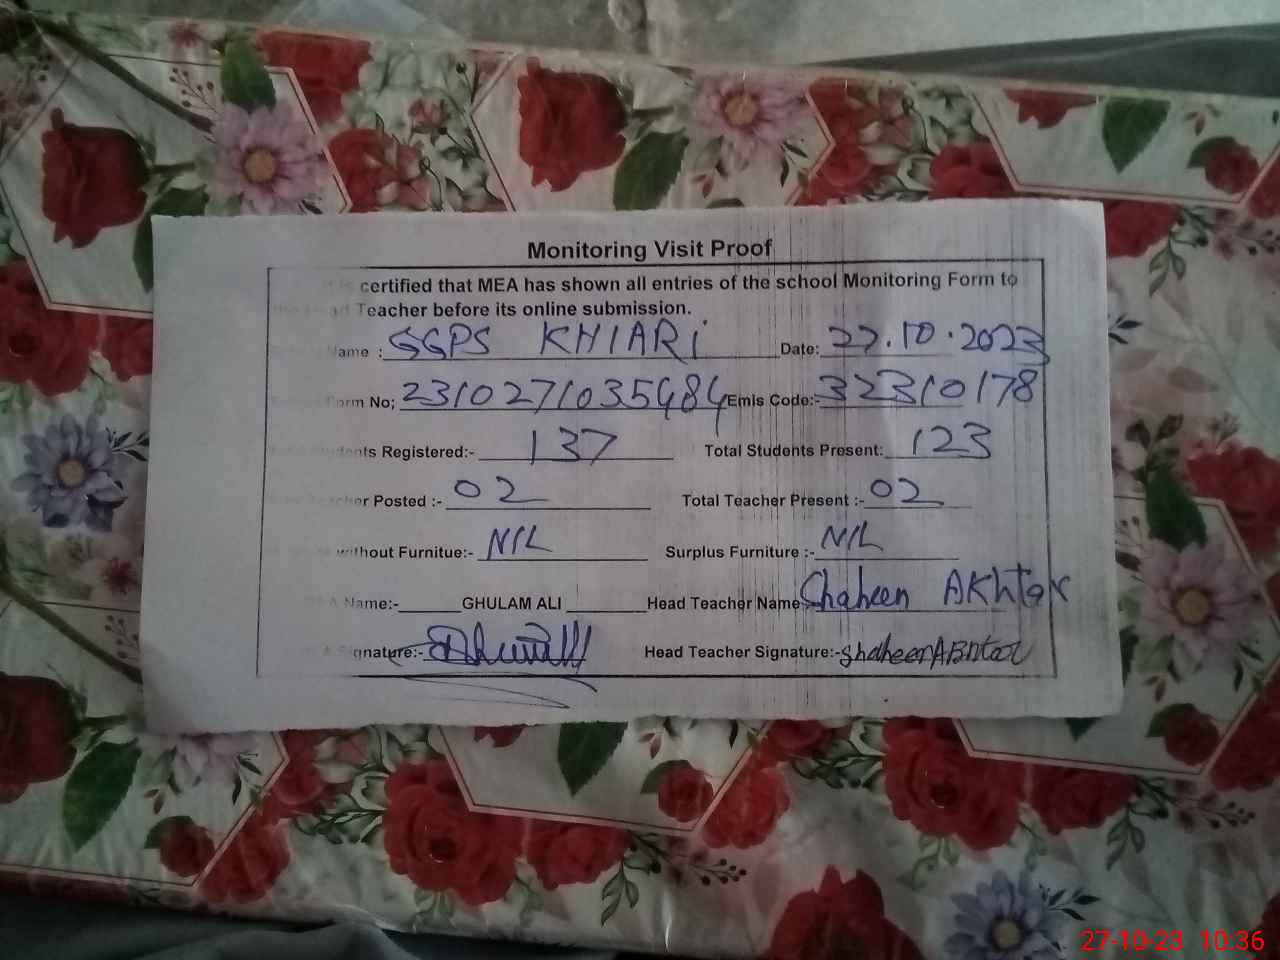 Monitoring Visit Proof
is certified that MEA has shown all entries of the school Monitoring Form to
the Head Teacher before its online submission.
Name : GGPS KHIARI Date: 27.10.2023
Form No; 2310271035484 Emis Code:- 32310178
Students Registered:- 137 Total Students Present: 123
Teacher Posted :- 02 Total Teacher Present :- 02
without Furnitue:- NIL Surplus Furniture :- NIL
A Name:- GHULAM ALI Head Teacher Name Shaheen AKhtar
A Signature:- Head Teacher Signature:- Shaheen
27-10-23 10:36